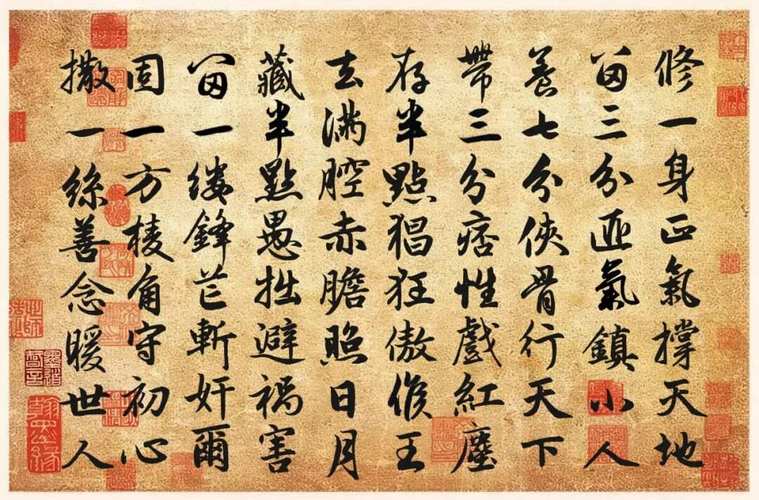 修一身正氣撐天地
留三分匪氣鎮小人
養七分俠骨行天下
帶三分痞性戲紅塵
存半點猖狂傲侯王
去满腔赤膽照日月
藏半點愚拙避禍害
留一缕鋒芒斬奸爾
固一方棱角守初心
撒一絲善念暖世人
翰墨缘